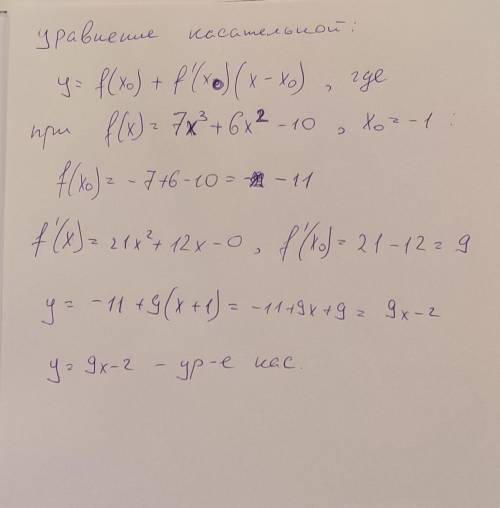 уравнение касательной:
y = f(x₀) + f'(x₀)(x - x₀), где
при f(x) = 7x³ + 6x² - 10, x₀ = -1:
f(x₀) = -7+6-10 = -11
f'(x) = 21x² + 12x - 0, f'(x₀) = 21 - 12 = 9
y = -11 + 9(x+1) = -11+9x+9 = 9x-2
y = 9x-2 - ур-е кас.